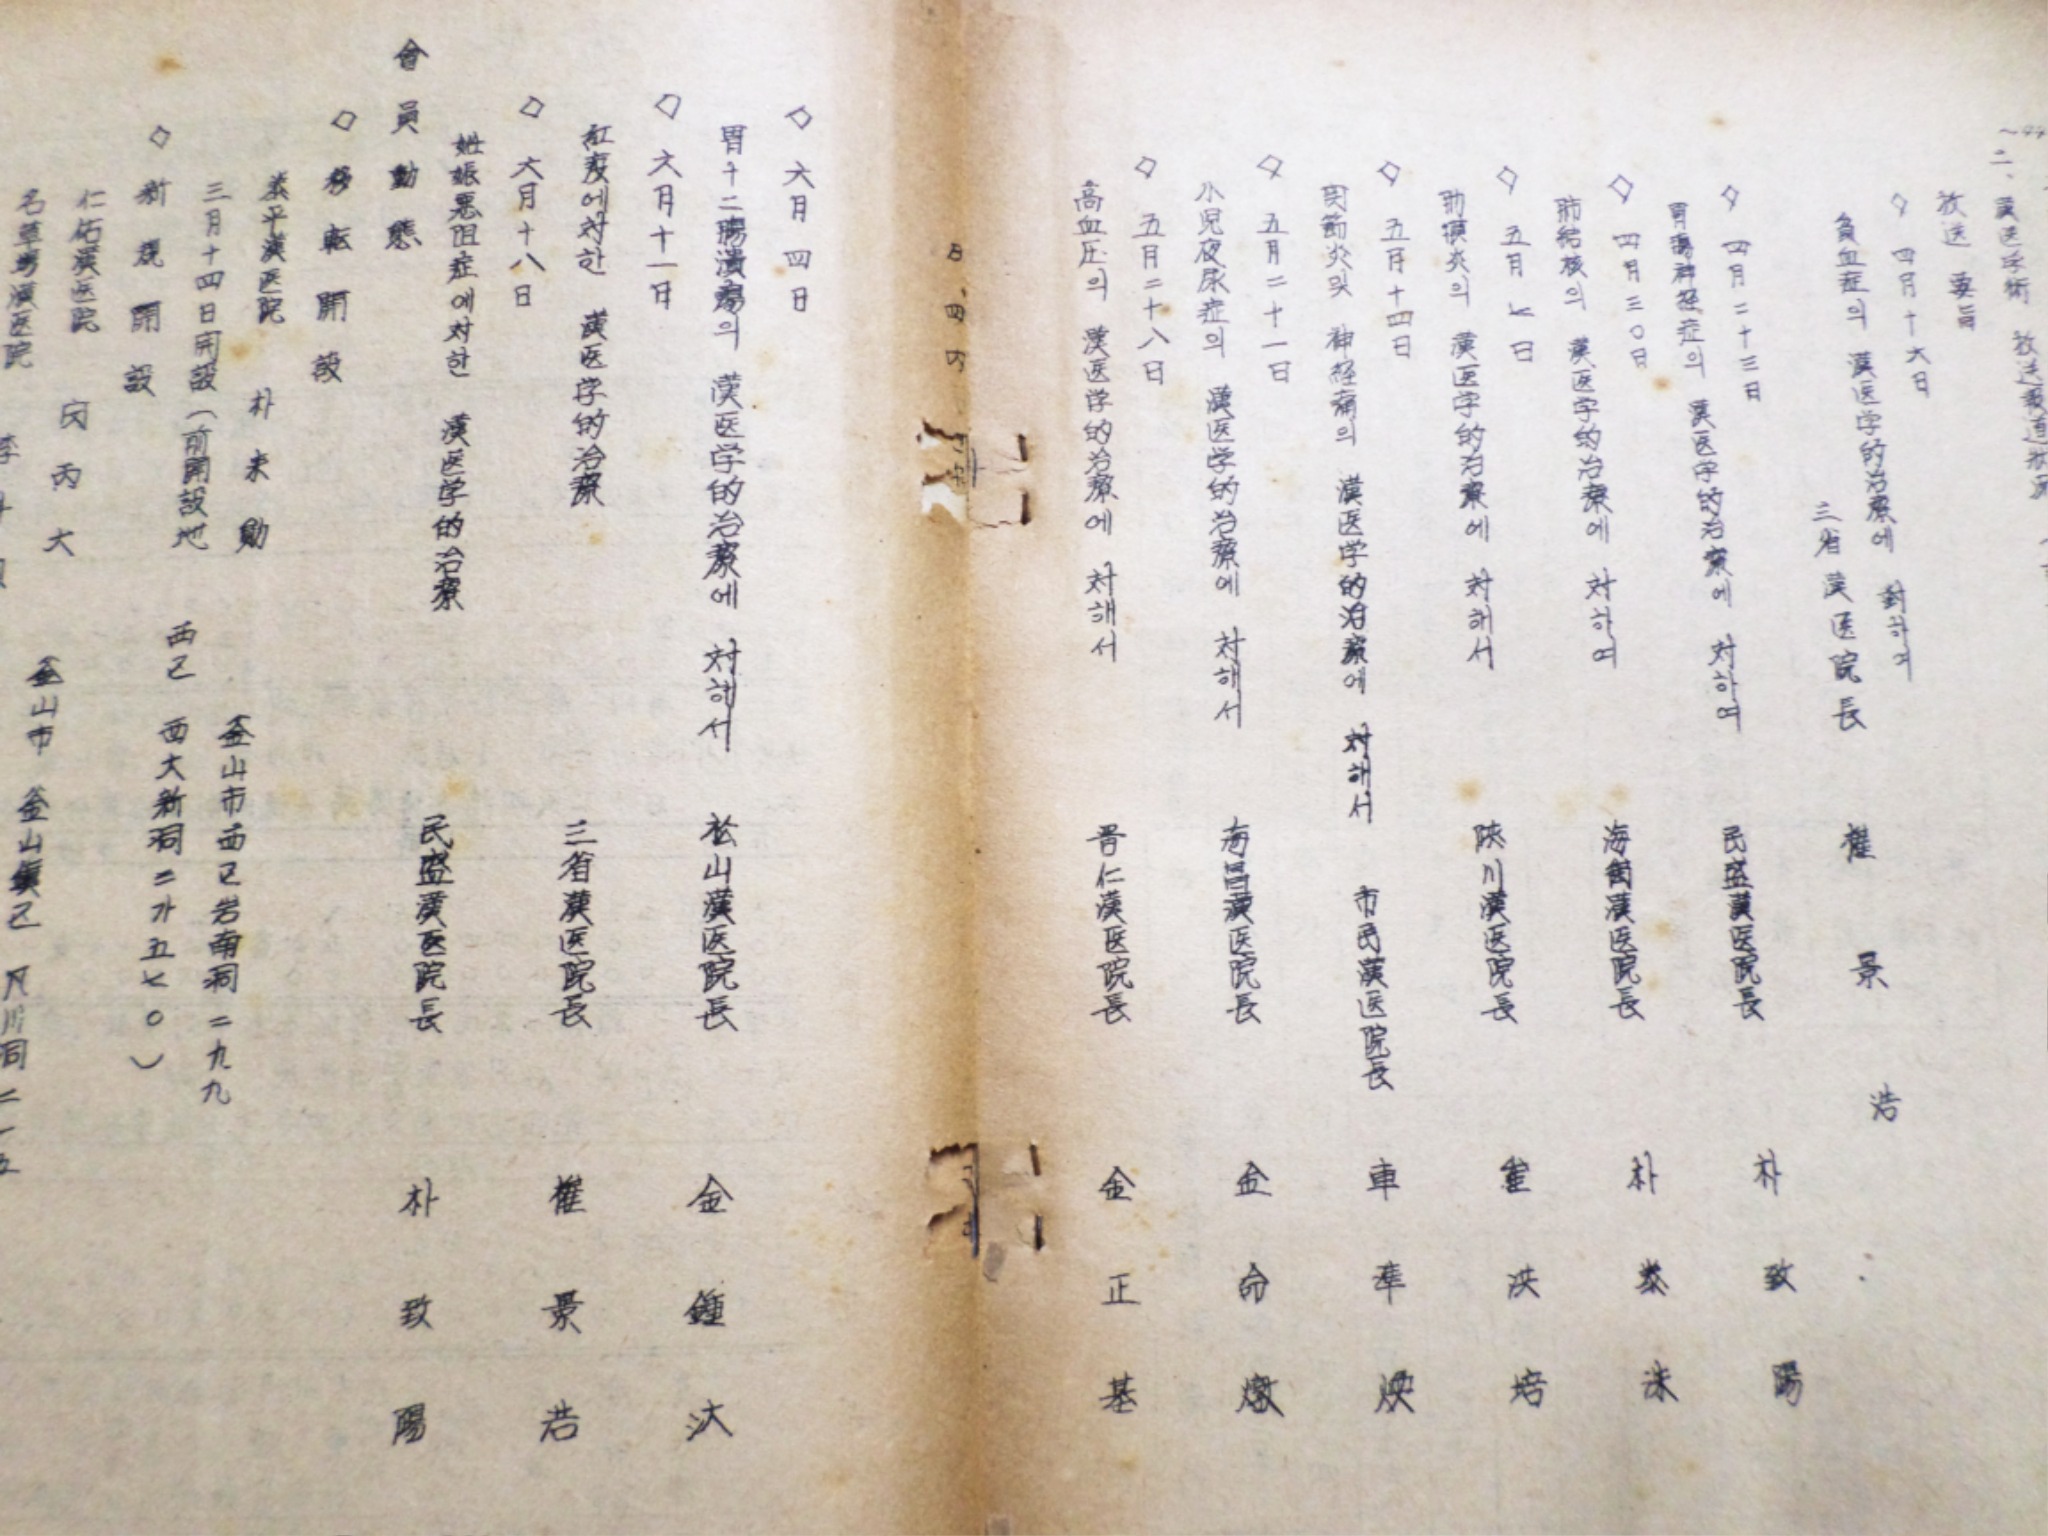 二、漢医学術 放送報道状況
放送 要旨
◇ 四月十六日
貧血症의 漢医学的治療에 對하여
三省漢医院長 権景浩
◇ 四月二十三日
胃腸神経症의 漢医学的治療에 対하여
民盛漢医院長 朴致陽
◇ 四月三〇日
肺結核의 漢医学的治療에 対하여
漢医院長 朴泰洙
◇ 五月七日
肋膜炎의 漢医学的治療에 対해서
陜川漢医院長 培
◇ 五月十四日
関節炎및 神経痛의 漢医学的治療에 対해서
市民漢医院長 車準煥
◇ 五月二十一日
小児夜尿症의 漢医学的治療에 対해서
海昌漢医院長 金命燉
◇ 五月二十八日
高血圧의 漢医学的治療에 対해서
晋仁漢医院長 金正基
◇ 六月四日
胃十二腸潰瘍의 漢医学的治療에 対해서
松山漢医院長 金鍾汏
◇ 六月十一日
紅疫에対한 漢医学的治療
三省漢医院長 権景浩
◇ 六月十八日
姙娠悪阻症에対한 漢医学的治療
民盛漢医院長 朴致陽
會員動態
◇ 移転開設
泰平漢医院 朴来勛 釜山市西区岩南洞二九九
三月十四日開設(前開設地 西区 西大新洞二가五七〇)
◇ 新規開設
仁佑漢医院 丙大
漢医院 李 釜山市 釜山鎮区 凡川洞二一五